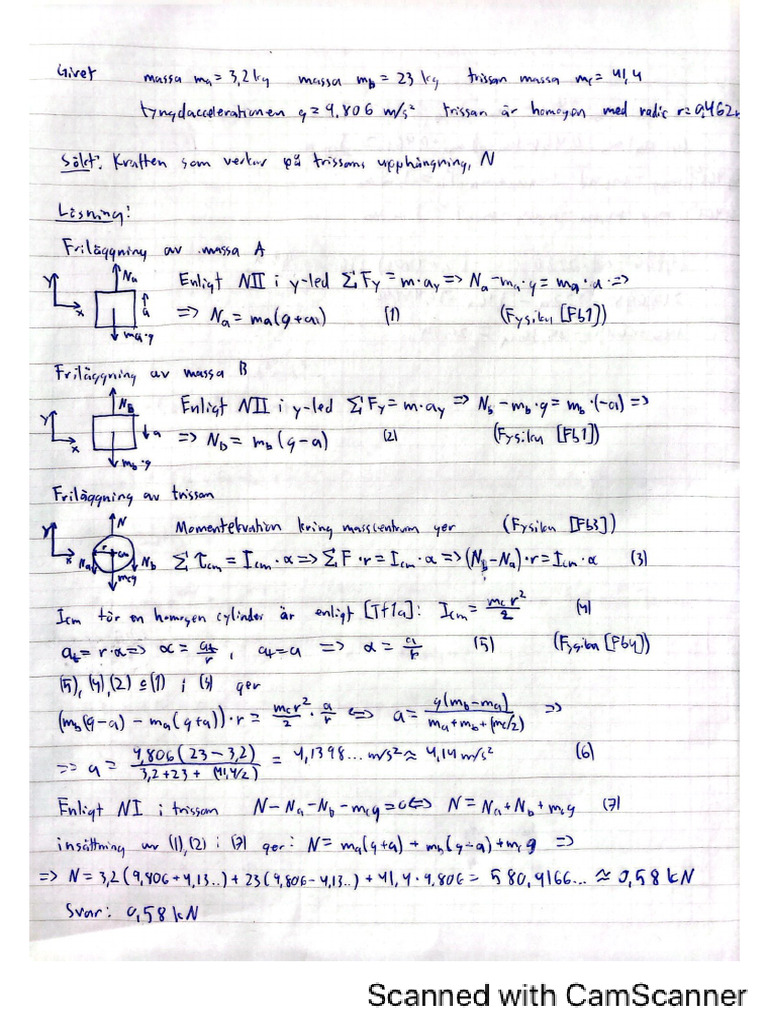 Givet massa ma = 3,2 kg massa mb = 23 kg trissan massa mc = 41,4
tyngdaccelerationen g = 9,806 m/s² trissan är homogen med radie r = 0,462
Sökt: Kraften som verkar på trissans upphängning, N
Lösning:
Friläggning av massa A
Y x Na a ma·g Enligt NII i y-led ΣFy = m·ay => Na - ma·g = ma·a =>
=> Na = ma(g+a) (1) (Fysika [Fb1])
Friläggning av massa B
Y x NB a mb·g Enligt NII i y-led ΣFy = m·ay => Nb - mb·g = mb·(-a) =>
=> Nb = mb(g-a) (2) (Fysika [Fb1])
Friläggning av trissan
Y x N r cm Na Nb mcg Momentekvation kring masscentrum ger (Fysika [Fb3])
Στcm = Icm·α => ΣF·r = Icm·α => (Nb-Na)·r = Icm·α (3)
Icm för en homogen cylinder är enligt [Tf1a]: Icm = mcr²/2 (4)
at = r·α => α = at/r, at = a => α = a/r (5) (Fysika [Fb4])
(5), (4), (2) & (1) i (3) ger
(mb(g-a) - ma(g+a))·r = mcr²/2 · a/r <=> a = g(mb-ma)/(ma+mb+(mc/2)) =>
=> a = 9,806(23-3,2)/(3,2+23+(41,4/2)) = 4,1398... m/s² ≈ 4,14 m/s² (6)
Enligt NI i trissan N-Na-Nb-mcg=0 <=> N = Na+Nb+mcg (7)
insättning av (1),(2) i (7) ger: N = ma(g+a) + mb(g-a) + mcg =>
=> N = 3,2(9,806+4,13..) + 23(9,806-4,13..) + 41,4·9,806 = 580,4166... ≈ 0,58 kN
Svar: 0,58 kN
Scanned with CamScanner